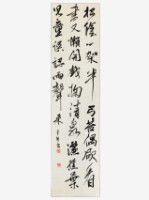 松陰一架半弓苔偶欲看
書又懶開戲掬清泉灑蕉葉
兒童誤認雨聲來